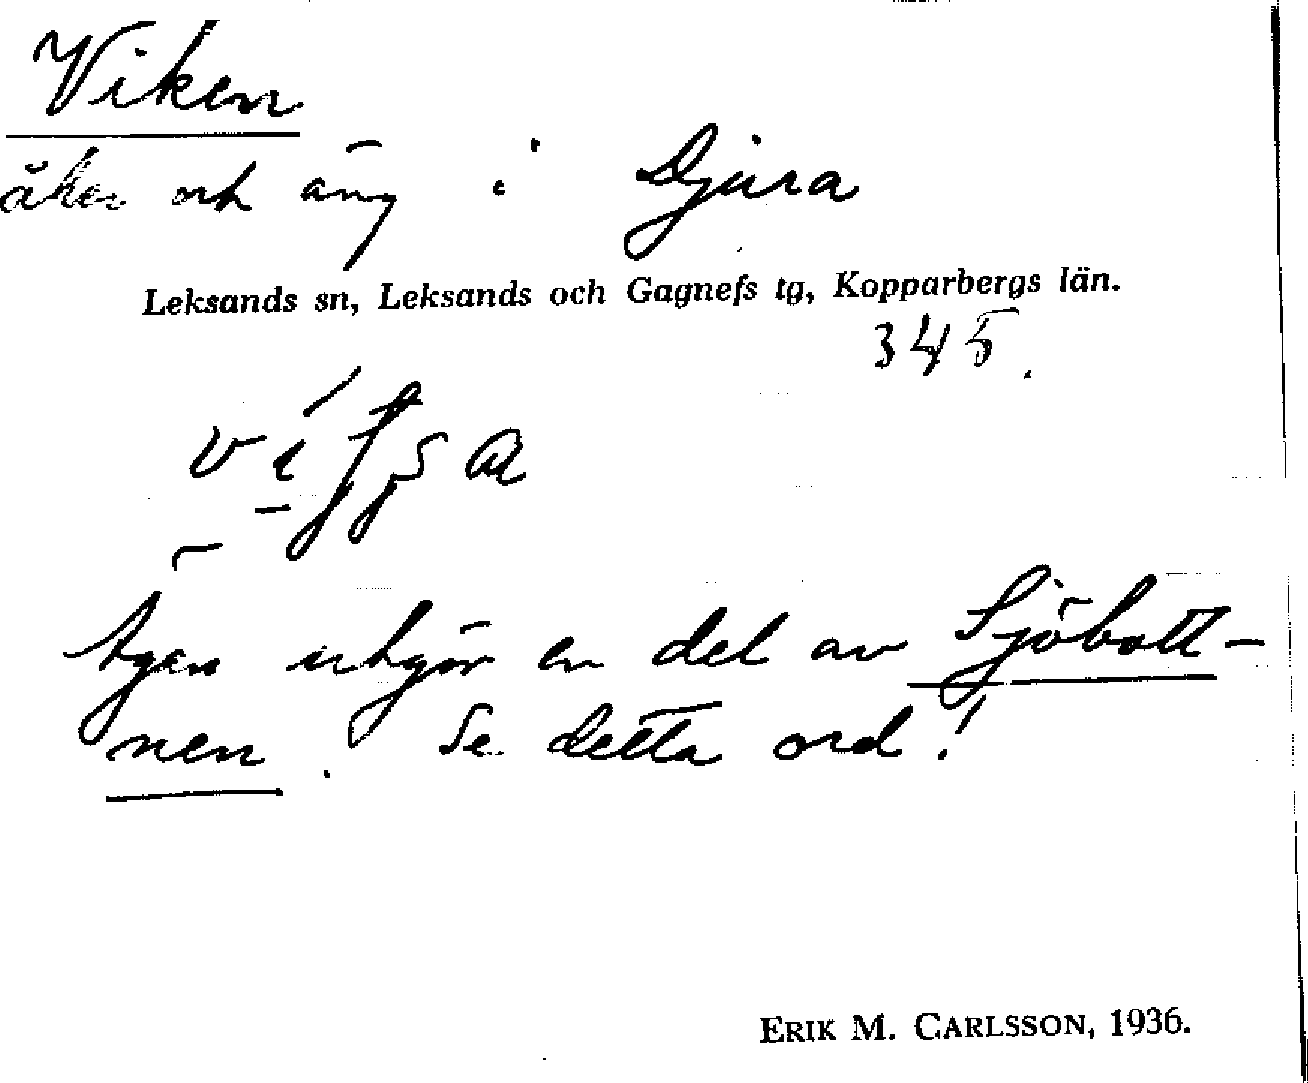 Viken
åker och äng i Djura
Leksands sn, Leksands och Gagnefs tg, Kopparbergs län.
345.
Ägan utgör en del av Sjöbott-
nen. Se detta ord!
ERIK M. CARLSSON, 1936.